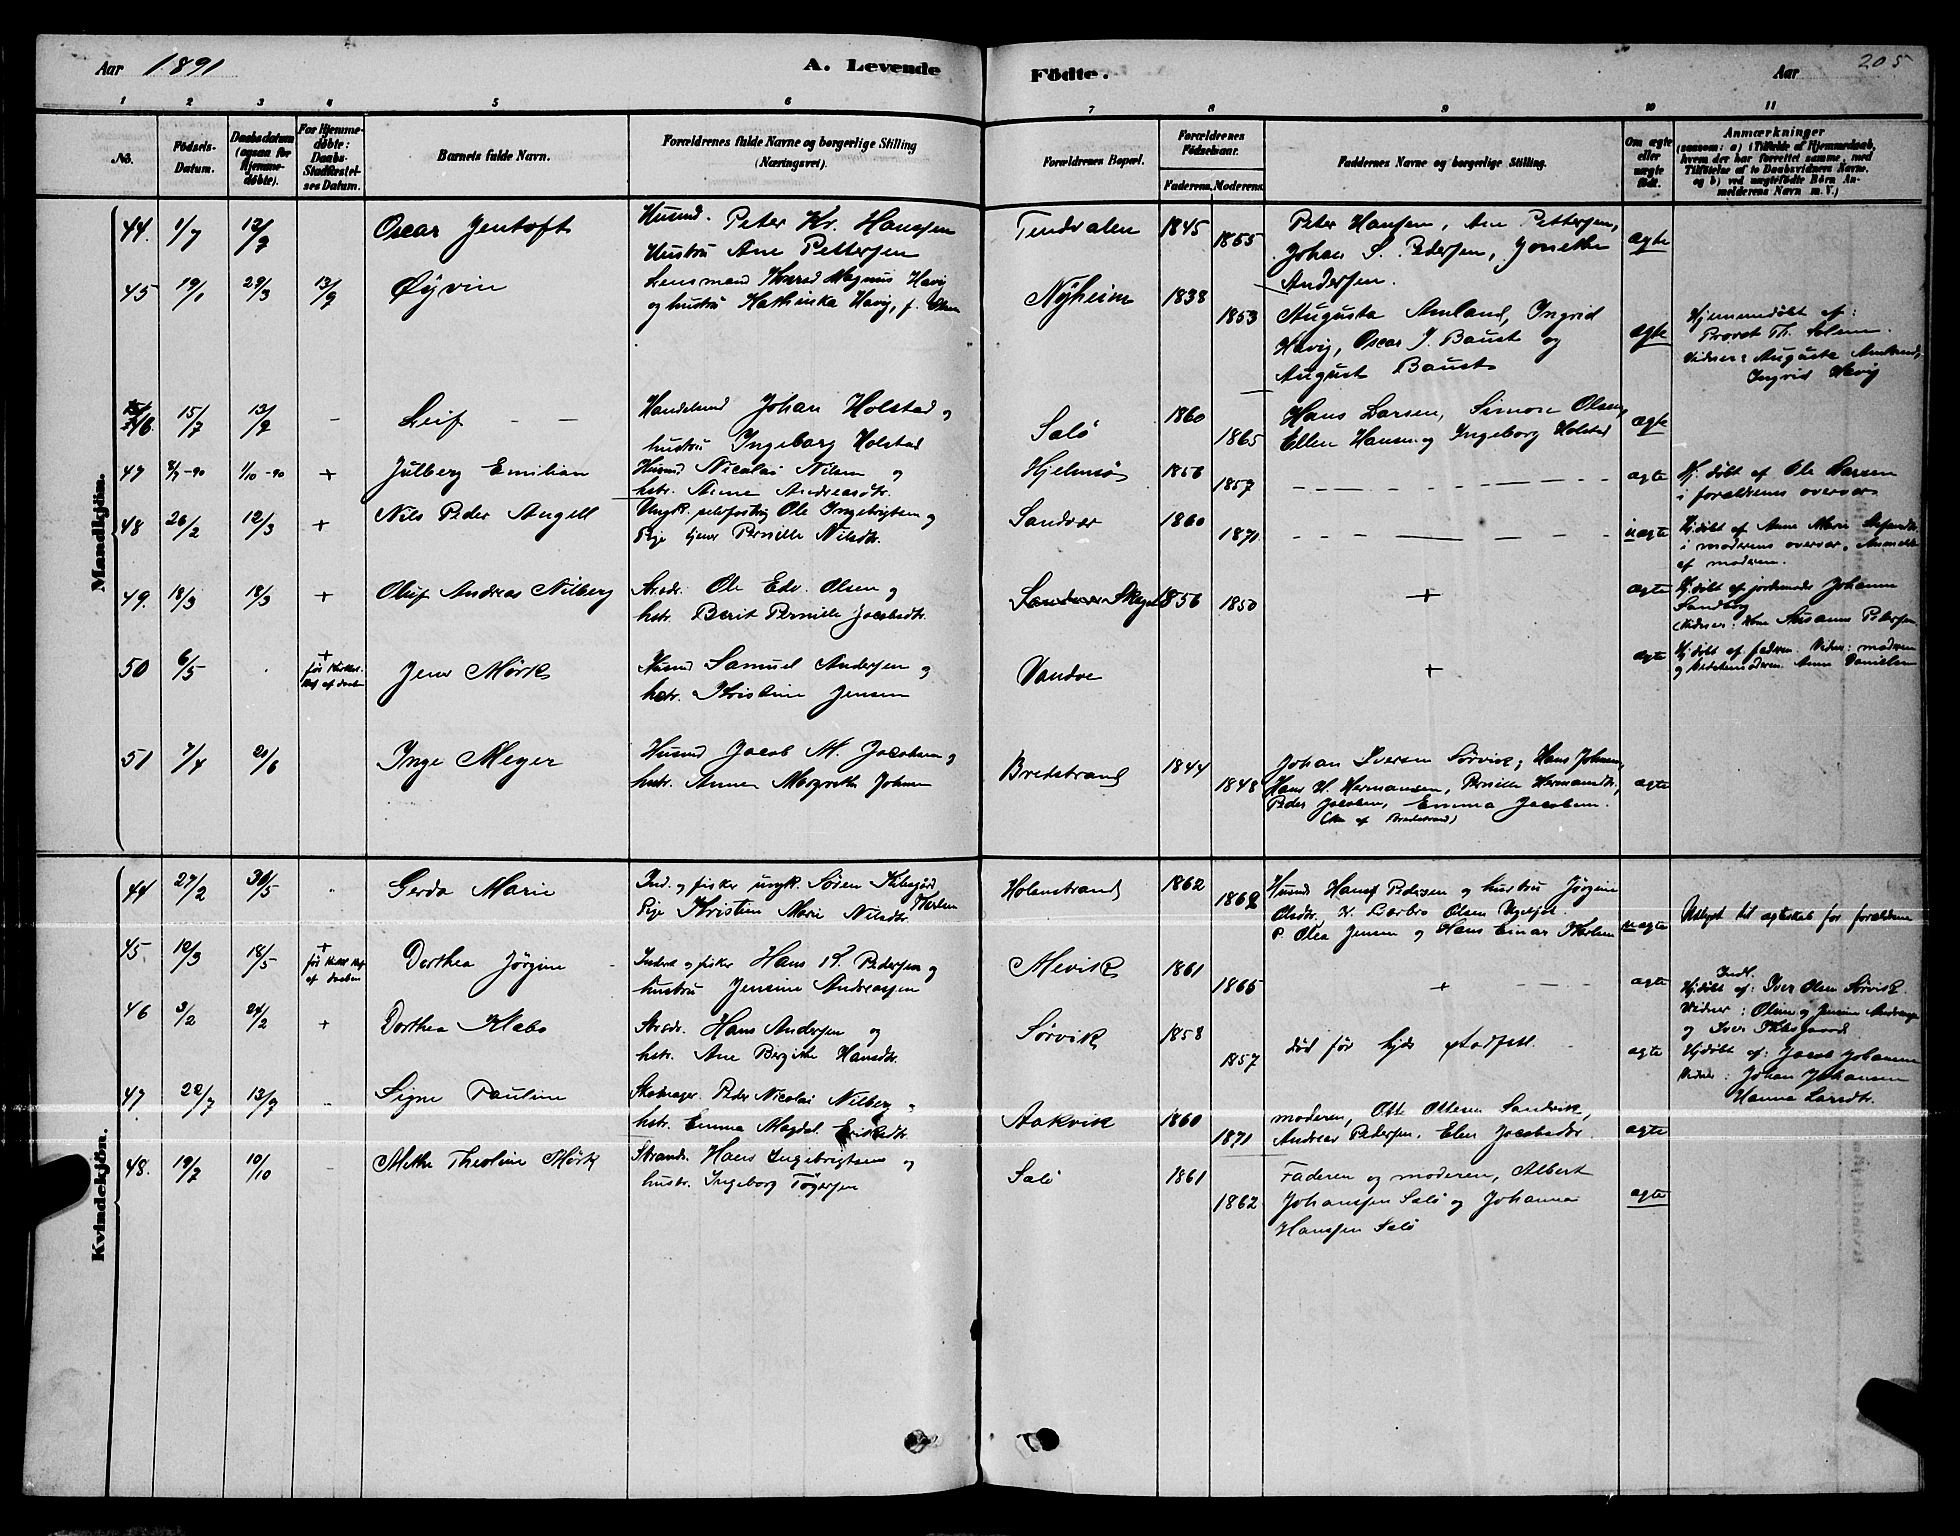 Aar 1891
A. Levende
Födte.
Aar
205
1 2 3 4 5 6 7 8 9 10 11
No.
Födsels-Datum.
Daabsdatum (ogsaa for Hjemme-døbte).
For Hjemme-døbte: Daabs-Stadfæstel-ses Datum.
Barnets fulde Navn.
Forældrenes fulde Navne og borgerlige Stilling (Næringsvei).
Forældrenes Bopæl.
Forældrenes Fødselsaar.
Faderens. Moderens.
Faddernes Navne og borgerlige Stilling.
Om ægte eller uægte født.
Anmærkninger
(saasom: a) i Tilfælde af Hjemmedaab, hvem der har forrettet samme, med Tilføielse af to Daabsvidners Navne, og b) ved uægtefødte Børn Anmelderens Navn m. V.)
Mandkjön.
44. 1/7 12/9 Oscar Jentoft Husmd. Peter Kr. Hanssen
Hustru Ane Pettersen
Tendvalen 1845 1855
Peter Hansen, Ane Pettersen,
Johan S. Pedersen,
Andersen.
ægte
45 19/1 29/3 13/9 Øyvin Lensmand Magnus Havig
og hustru Kathinka Havig, f.
Nyheim 1838 1853
Augusta Amland, Ingrid
Havig, Oscar J. Baust og
August Baust
ægte
Hjemmedøbt af:
Provst Th.
Vidner: Augusta Amland,
Ingrid Havig
46 15/7 13/9 - Leif - - Handelsmd Johan Holstad og
hustru Ingeborg Holstad
Salø 1860 1865
Hans Larsen, Simon Olsen,
Ellen Hansen og Ingeborg Holstad
ægte
47 1/10-90 + Julberg Emilian Husmd Nicolai Nilsen og
hstr. Anne Andreasdtr.
Hjelmsø 1856 1857
ægte
Hj. døbt af Ole Larsen
i forældrenes overvær
48 26/2 12/3 + Nils Peder Angell Ungk. Ole Ingebrigtsen og
Pige tjener Pernille Nilsdtr.
Sandvær 1860 1871
uægte
Hj.døbt af Anne Marie
i moderens overvær. Anmeldt
af moderen.
49. 18/3 18/3 + Oluf Andreas Nilberg Strdr. Ole Edv. Olsen og
hstr. Berit Pernille Jacobsdtr.
1856 1850
+
ægte
Hj.døbt af jordemoder Johanna
Sandberg
50 6/5 + Jens Mørk Husmd Samuel Andersen og
hstr. Kristine Jensen
Vandve
+
ægte
Hj.døbt af faderen. Vidner: moderen
og Anne Danielsen
51 7/4 21/6 Inge Meyer Husmd Jacob M. Jacobsen og
hstr. Anne Margrethe Johnsen
Bredstrand 1844 1848
Johan Iversen Sørvik, Hans Johnsen,
Hans H. Hermansen, Pernille Hermansdtr.,
Peder Jacobsen, Emma Jacobsen.
(Alle af Bredstrand)
ægte
Kvindekjön.
44 27/2 31/5 Gerda Marie Ind. og fisker ungk. Søren
Pige Kristine Marie Nilsdtr.
Holmstrand 1862 1862
Husmd Hans Pedersen og hustru Jørgine
Olsdtr. K. Barbro Olsen
P. Olea Jensen og Hans Einar
uægte
Udlyst til ægteskab for forældrene
45. 12/3 18/5 + Dorthea Jørgine Inderst og fisker Hans P. Pedersen og
hustru Jensine Andreassen
Mevik 1861 1865
+ - -
ægte
Indl.
Hj.døbt af: Iver Olsen Sørvik.
46 3/2 24/2 + Dorthea Klabo Strdr. Hans Andersen og
hstr. Ane Bergitte Hansdtr.
Sørvik 1858 1857
død før hjds stadfest.
ægte
Hj.døbt af: Jacob Johansen
Vidner: Johan Johansen
Hanna Larsdtr.
47 22/7 13/9 Signe Pauline Skomager Peder Nicolai Nilberg og
hstr. Emma Magdal. Eriksdtr.
Aakvik 1860 1871
moderen, Otte Ottesen Sandvik,
Andreas Pedersen, Elen Jacobsdtr.
ægte
48. 19/7 10/10 - Mette Theoline Mørk Strandr. Hans Ingebrigtsen og
hustr. Ingeborg Tøgersen
Salø 1861 1862
Faderen og moderen, Albert
Johanssen Salø og Johanna
Hanssen Salø
ægte